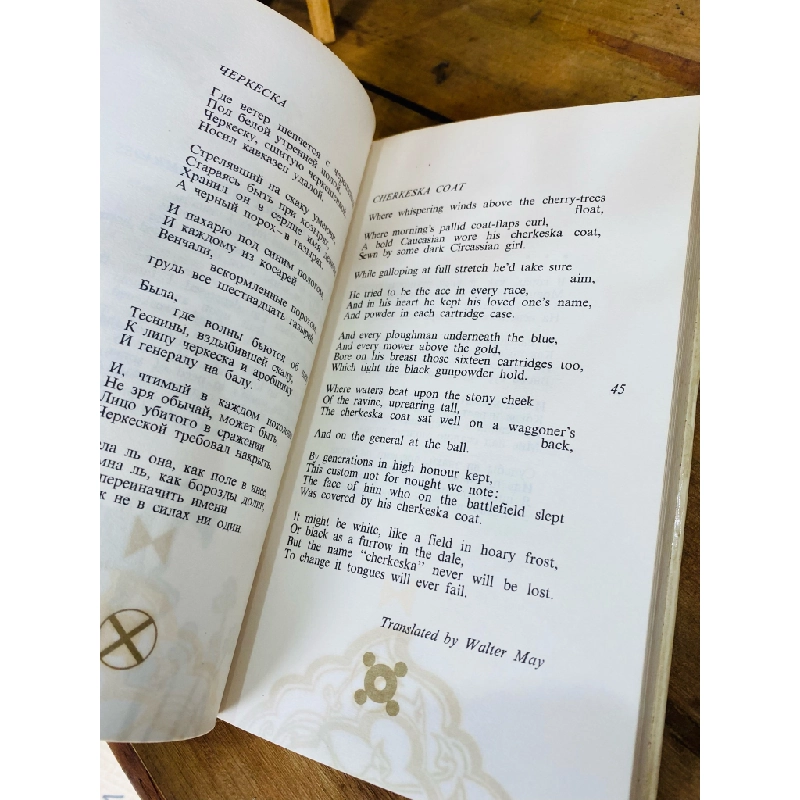 ЧЕРКЕСКА
Где ветер шепчется с
Под белой утренней полой
Черкеску, сшитую черкешенкой,
Носил кавказец удалой.
Стрелявший на скаку умеючи,
Стараясь быть при козырях,
Хранил он в сердце имя
А черный порох — в газырях.
И пахарю под синим пологом
И каждому из косарей
Венчала, вскормленные порохом,
грудь все шестнадцать газырей.
Была, где волны бьются об
Теснины, вздыбившей скалу,
К лицу черкеска и аробщику
И генералу на балу.
И, чтимый в каждом
Не зря обычай, может быть
Лицо убитого в сражении
Черкеской требовал накрыть.
ла ль она, как поле в инее
мна ль, как борозды долин,
переиначить имени
к не в силах ни один.
CHERKESKA COAT
Where whispering winds above the cherry-trees
float,
Where morning's pallid coat-flaps curl,
A bold Caucasian wore his cherkeska coat,
Sewn by some dark Circassian girl.
While galloping at full stretch he'd take sure
aim,
He tried to be the ace in every race,
And in his heart he kept his loved one's name,
And powder in each cartridge case.
And every ploughman underneath the blue,
And every mower above the gold,
Bore on his breast those sixteen cartridges too,
Which tight the black gunpowder hold.
45
Where waters beat upon the stony cheek
Of the ravine, uprearing tall,
The cherkeska coat sat well on a waggoner's
back,
And on the general at the ball.
By generations in high honour kept,
This custom not for nought we note:
The face of him who on the battlefield slept
Was covered by his cherkeska coat.
It might be white, like a field in hoary frost,
Or black as a furrow in the dale,
But the name "cherkeska" never will be lost.
To change it tongues will ever fail.
Translated by Walter May